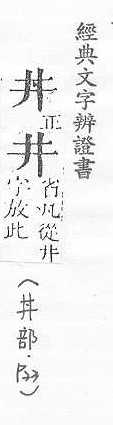 經典文字辨證書
丼正
井省凡從井
字放此
（丼部．）